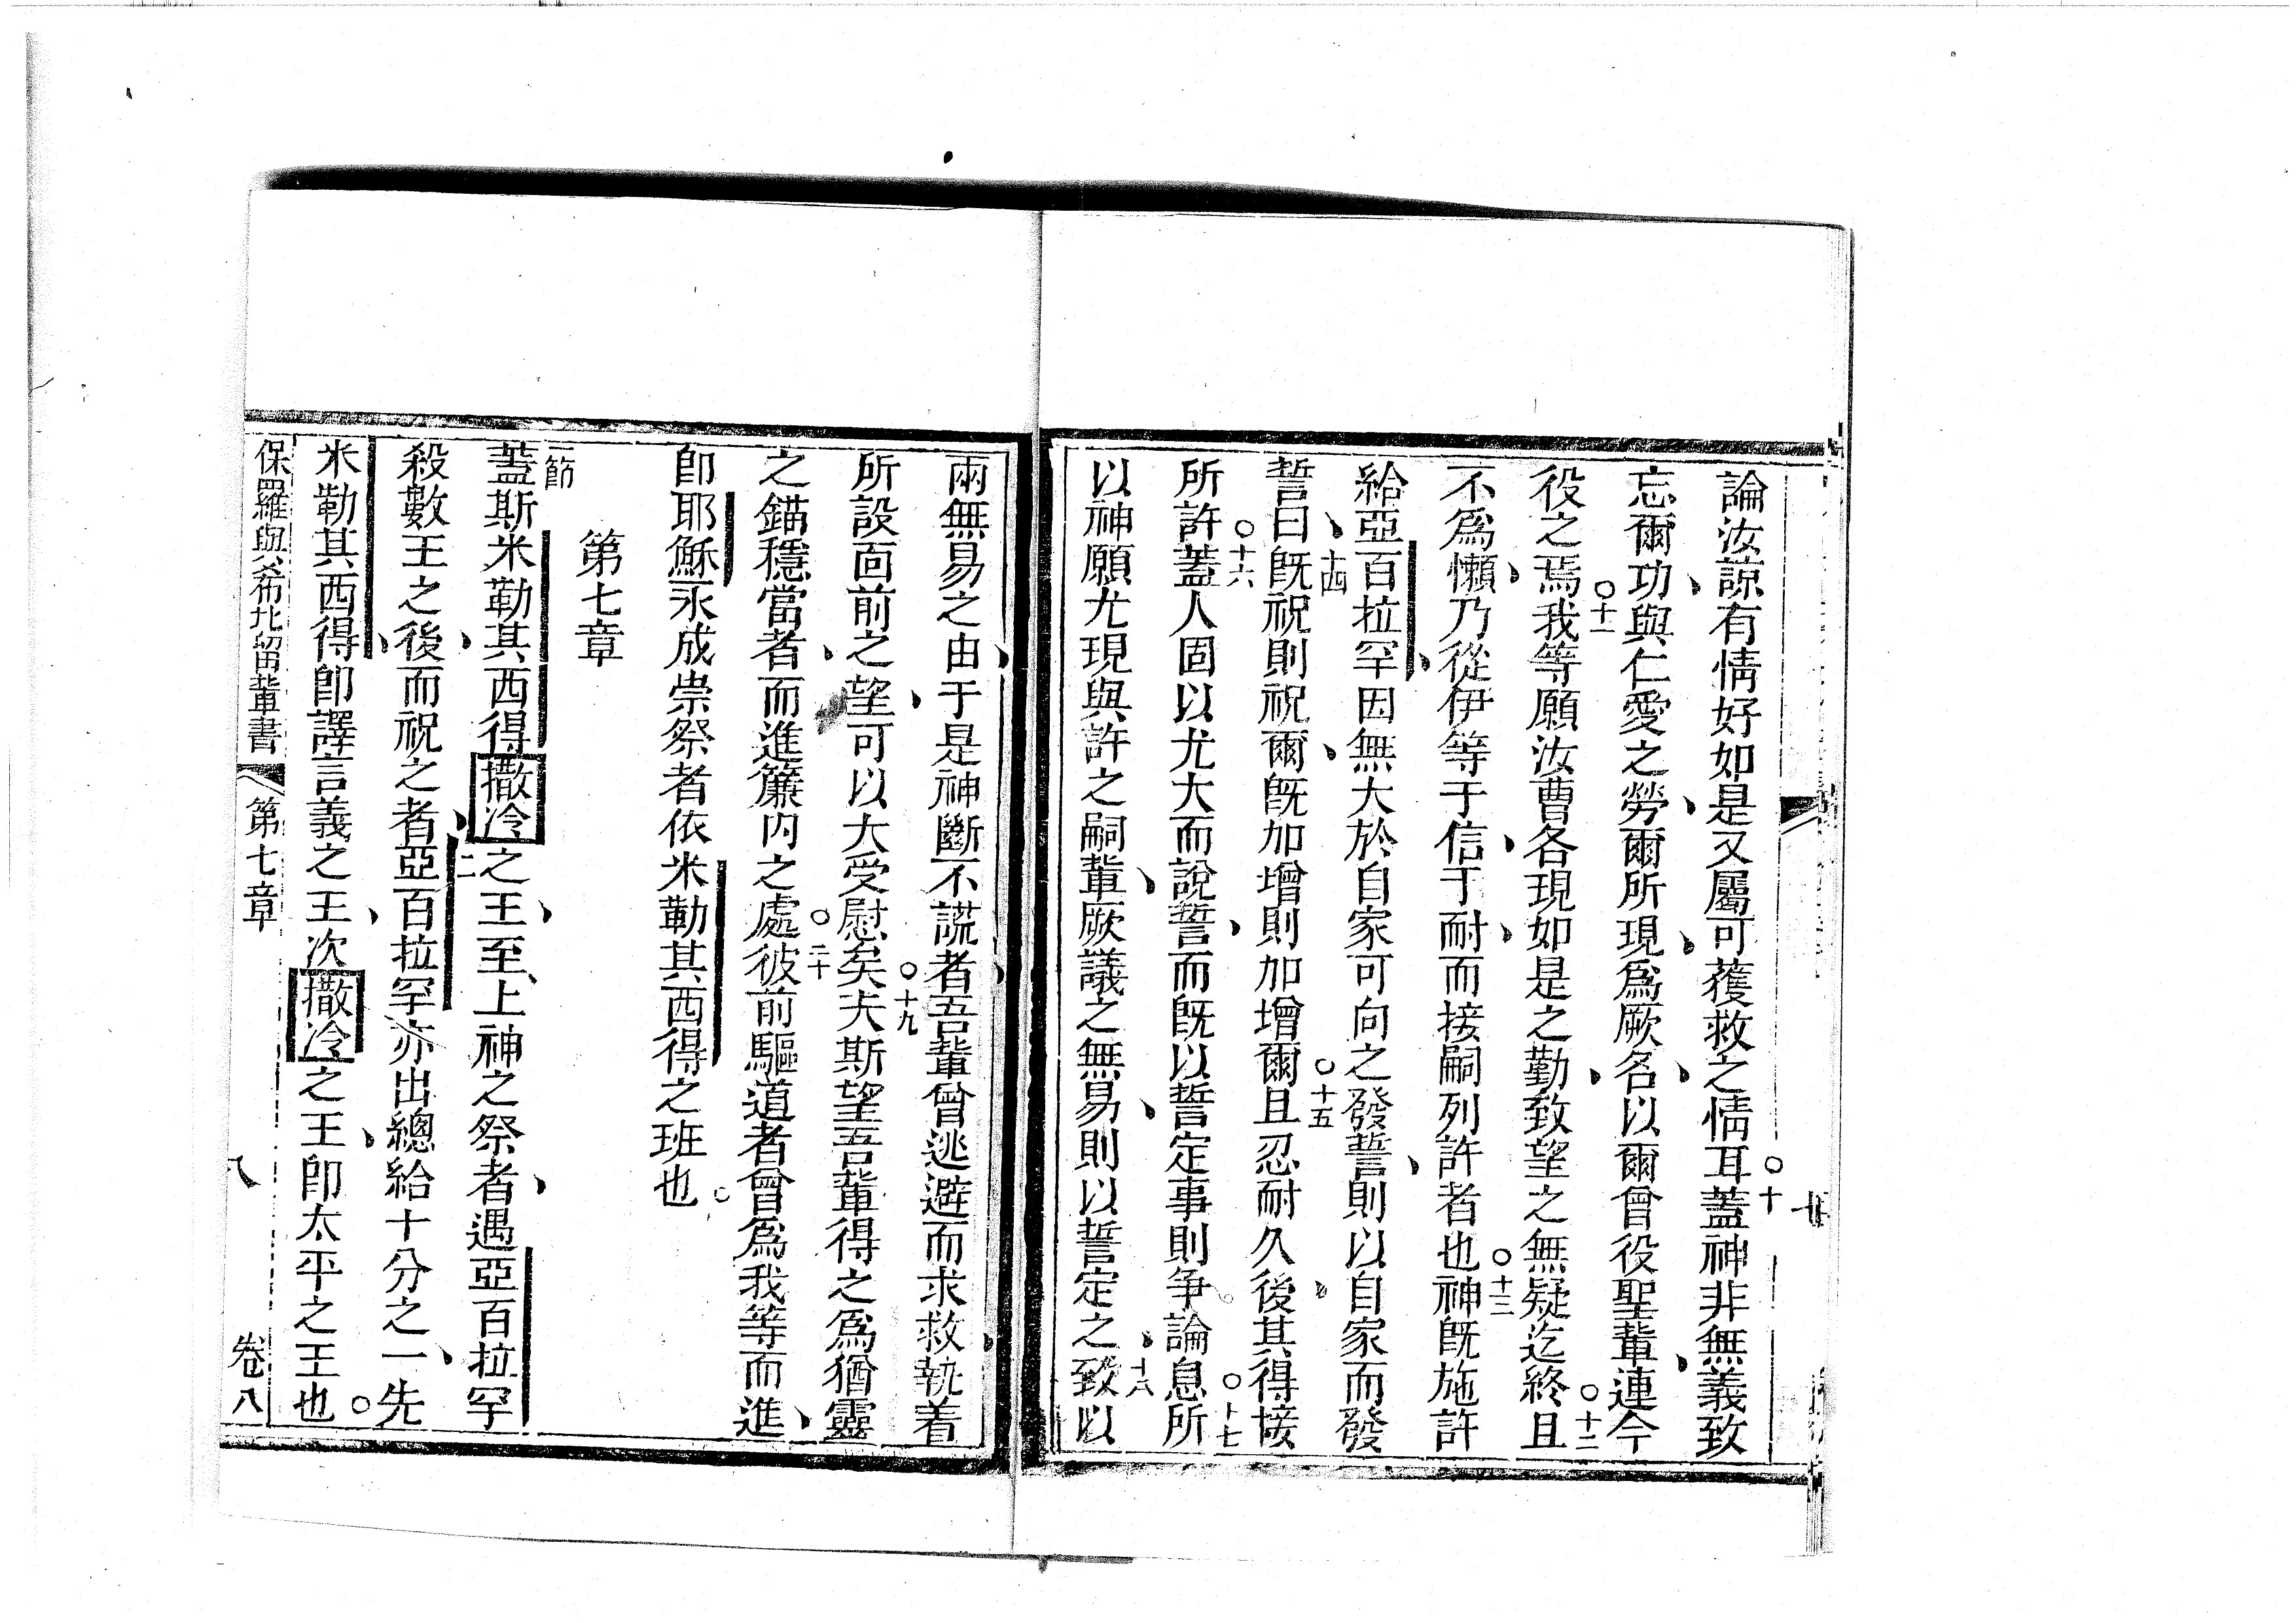 論汝諒有情好如是又屬可穫救之情耳○十蓋神非無義致
忘爾功、與仁愛之勞、爾所現、爲厥名、以爾曾役聖輩、連今
役之焉○十一我等願汝曹各現如是之勤、致望之無疑迄終○十二且
不爲懶、乃從伊等于信、于耐、而接嗣列許者也○十三神旣施許
給亞百拉罕、因無大於自家可向之發誓、則以自家而發
誓曰、十四旣祝則祝爾、旣加增則加增爾○十五且忍耐久後、其得接
所許○十六蓋人固以尤大而說誓、而旣以誓定事則爭論息○十七所
以神願尤現與許之嗣輩、厥議之無易、則以誓定之、十八致以
兩無易之由、于是神斷不謊者、吾輩曾逃避而求救、執着
所設面前之望、可以大受慰矣○十九夫斯望吾輩得之爲猶靈
之錨穩當者、而進簾內之處○二十彼前驅道者曾爲我等而進、
卽耶穌永成崇祭者依米勒其西得之班也○
第七章
一節
蓋斯米勒其西得撒冷之王、至上神之祭者、遇亞百拉罕
殺數王之後、而祝之者、二亞百拉罕亦出總給十分之一、先
米勒其西得、卽譯言義之王、次撒冷之王、卽太平之王也○
保羅與希比留輩書 第七章 八 卷八